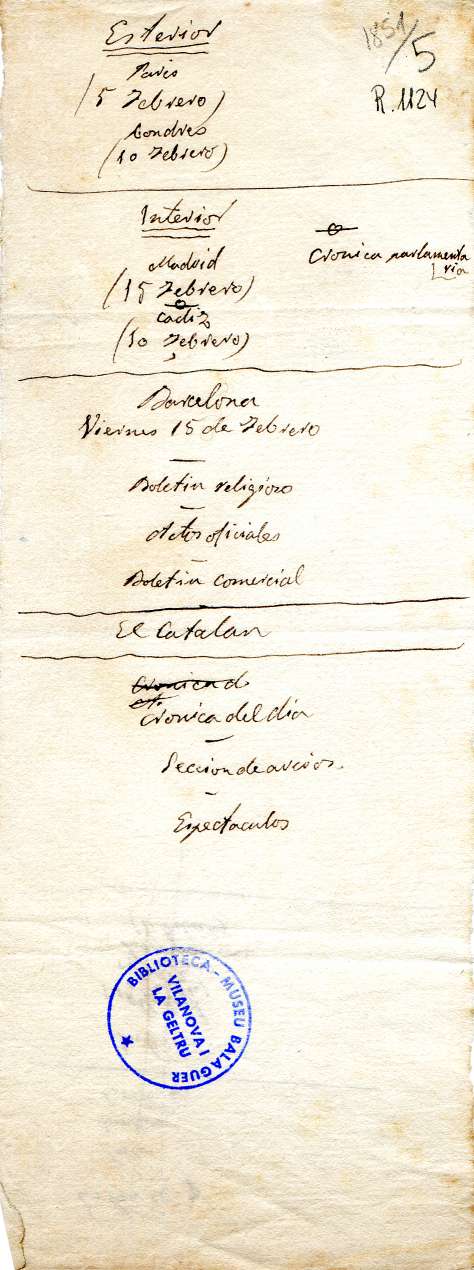 1851/5
R. 1124
Esterior
Paris
(5 Febrero)
Londres
(10 Febrero)
Interior
Madrid
(15 Febrero)
Cadiz
(10 Febrero)
Cronica parlamenta
ria
Barcelona
Viernes 15 de Febrero
Boletin religioso
Actos oficiales
Boletin comercial
El Catalan
Cronica d
Cronica del dia
Seccion de avisos
Espectaculos
BIBLIOTECA - MUSEU BALAGUER
VILANOVA I
LA GELTRU